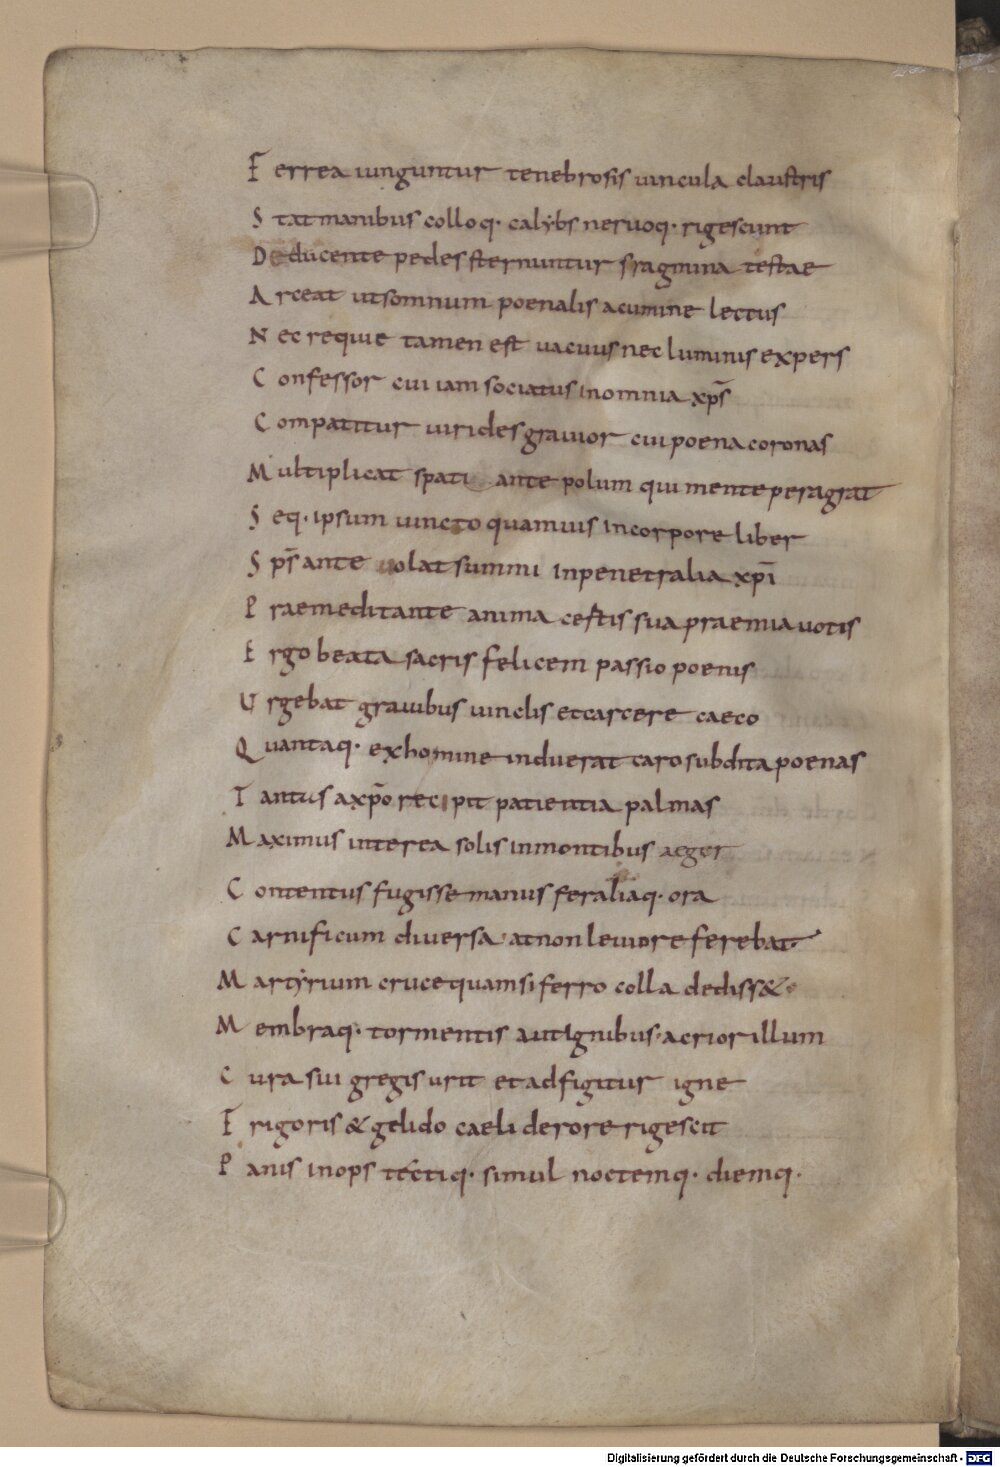 Ferrea iunguntur tenebrosis uincula claustris
Stat manibus colloq· calybs neruoq· rigescunt
Deducente pedes sternuntur fragmina testae
Arceat ut somnum poenalis acumine lectus
Nec requie tamen est uacuus nec luminis expers
Confessor cui iam sociatus in omnia xp̄s
Compatitur uirides grauior cui poena coronas
Multiplicat spati ante polum qui mente peragrat
Seq· ipsum uincto quamuis in corpore liber
Sps̄ ante uolat summi in penetralia xpī
Praemeditante anima certis sua praemia uotis
Ergo beata sacris felicem passio poenis
Urgebat grauibus uinclis et carcere caeco
Quantaq· ex homine induerat caro subdita poenas
Tantus a xp̄o recipit patientia palmas
Maximus interea solis in montibus aeger
Contentus fugisse manus feraliaq· ora
Carnificum diuersa at non leuiore ferebat·
Martyrium cruce quam si ferro colla dediss&·
Membraq· tormentis aut ignibus acrior illum
Cura sui gregis urit et adfigitur igne
Frigoris & gelido caeli de rore rigescit
Panis inops tectiq· simul noctemq· diemq·
Digitalisierung gefördert durch die Deutsche Forschungsgemeinschaft - DFG